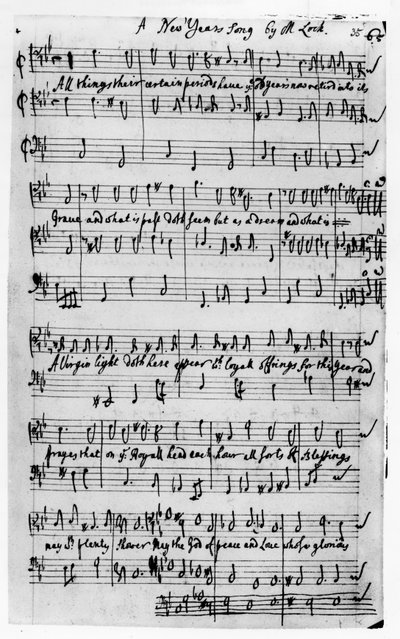 A New Years Song by M. Lock. 35 65
All things their certain periods have ye old years now retir'd into its
Grave and what is past doth seem but as a dream and what is
A Virgin light doth here appear wth loyall offrings for this year and
prayes that on ye Royall head each hour all sorts of Blessings
may St plenty shower May the God of peace and Love whose glorious